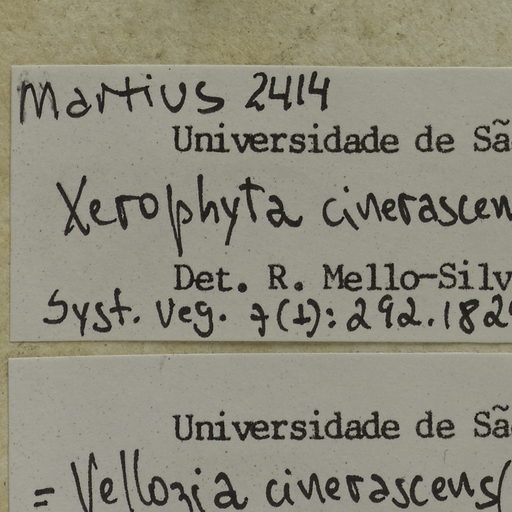 Martius 2414
Universidade de Sã
Xerophyta cinerascen
Det. R. Mello-Silv
Syst. Veg. 7(1): 292. 182
Universidade de Sã
= Vellozia cinerascens(